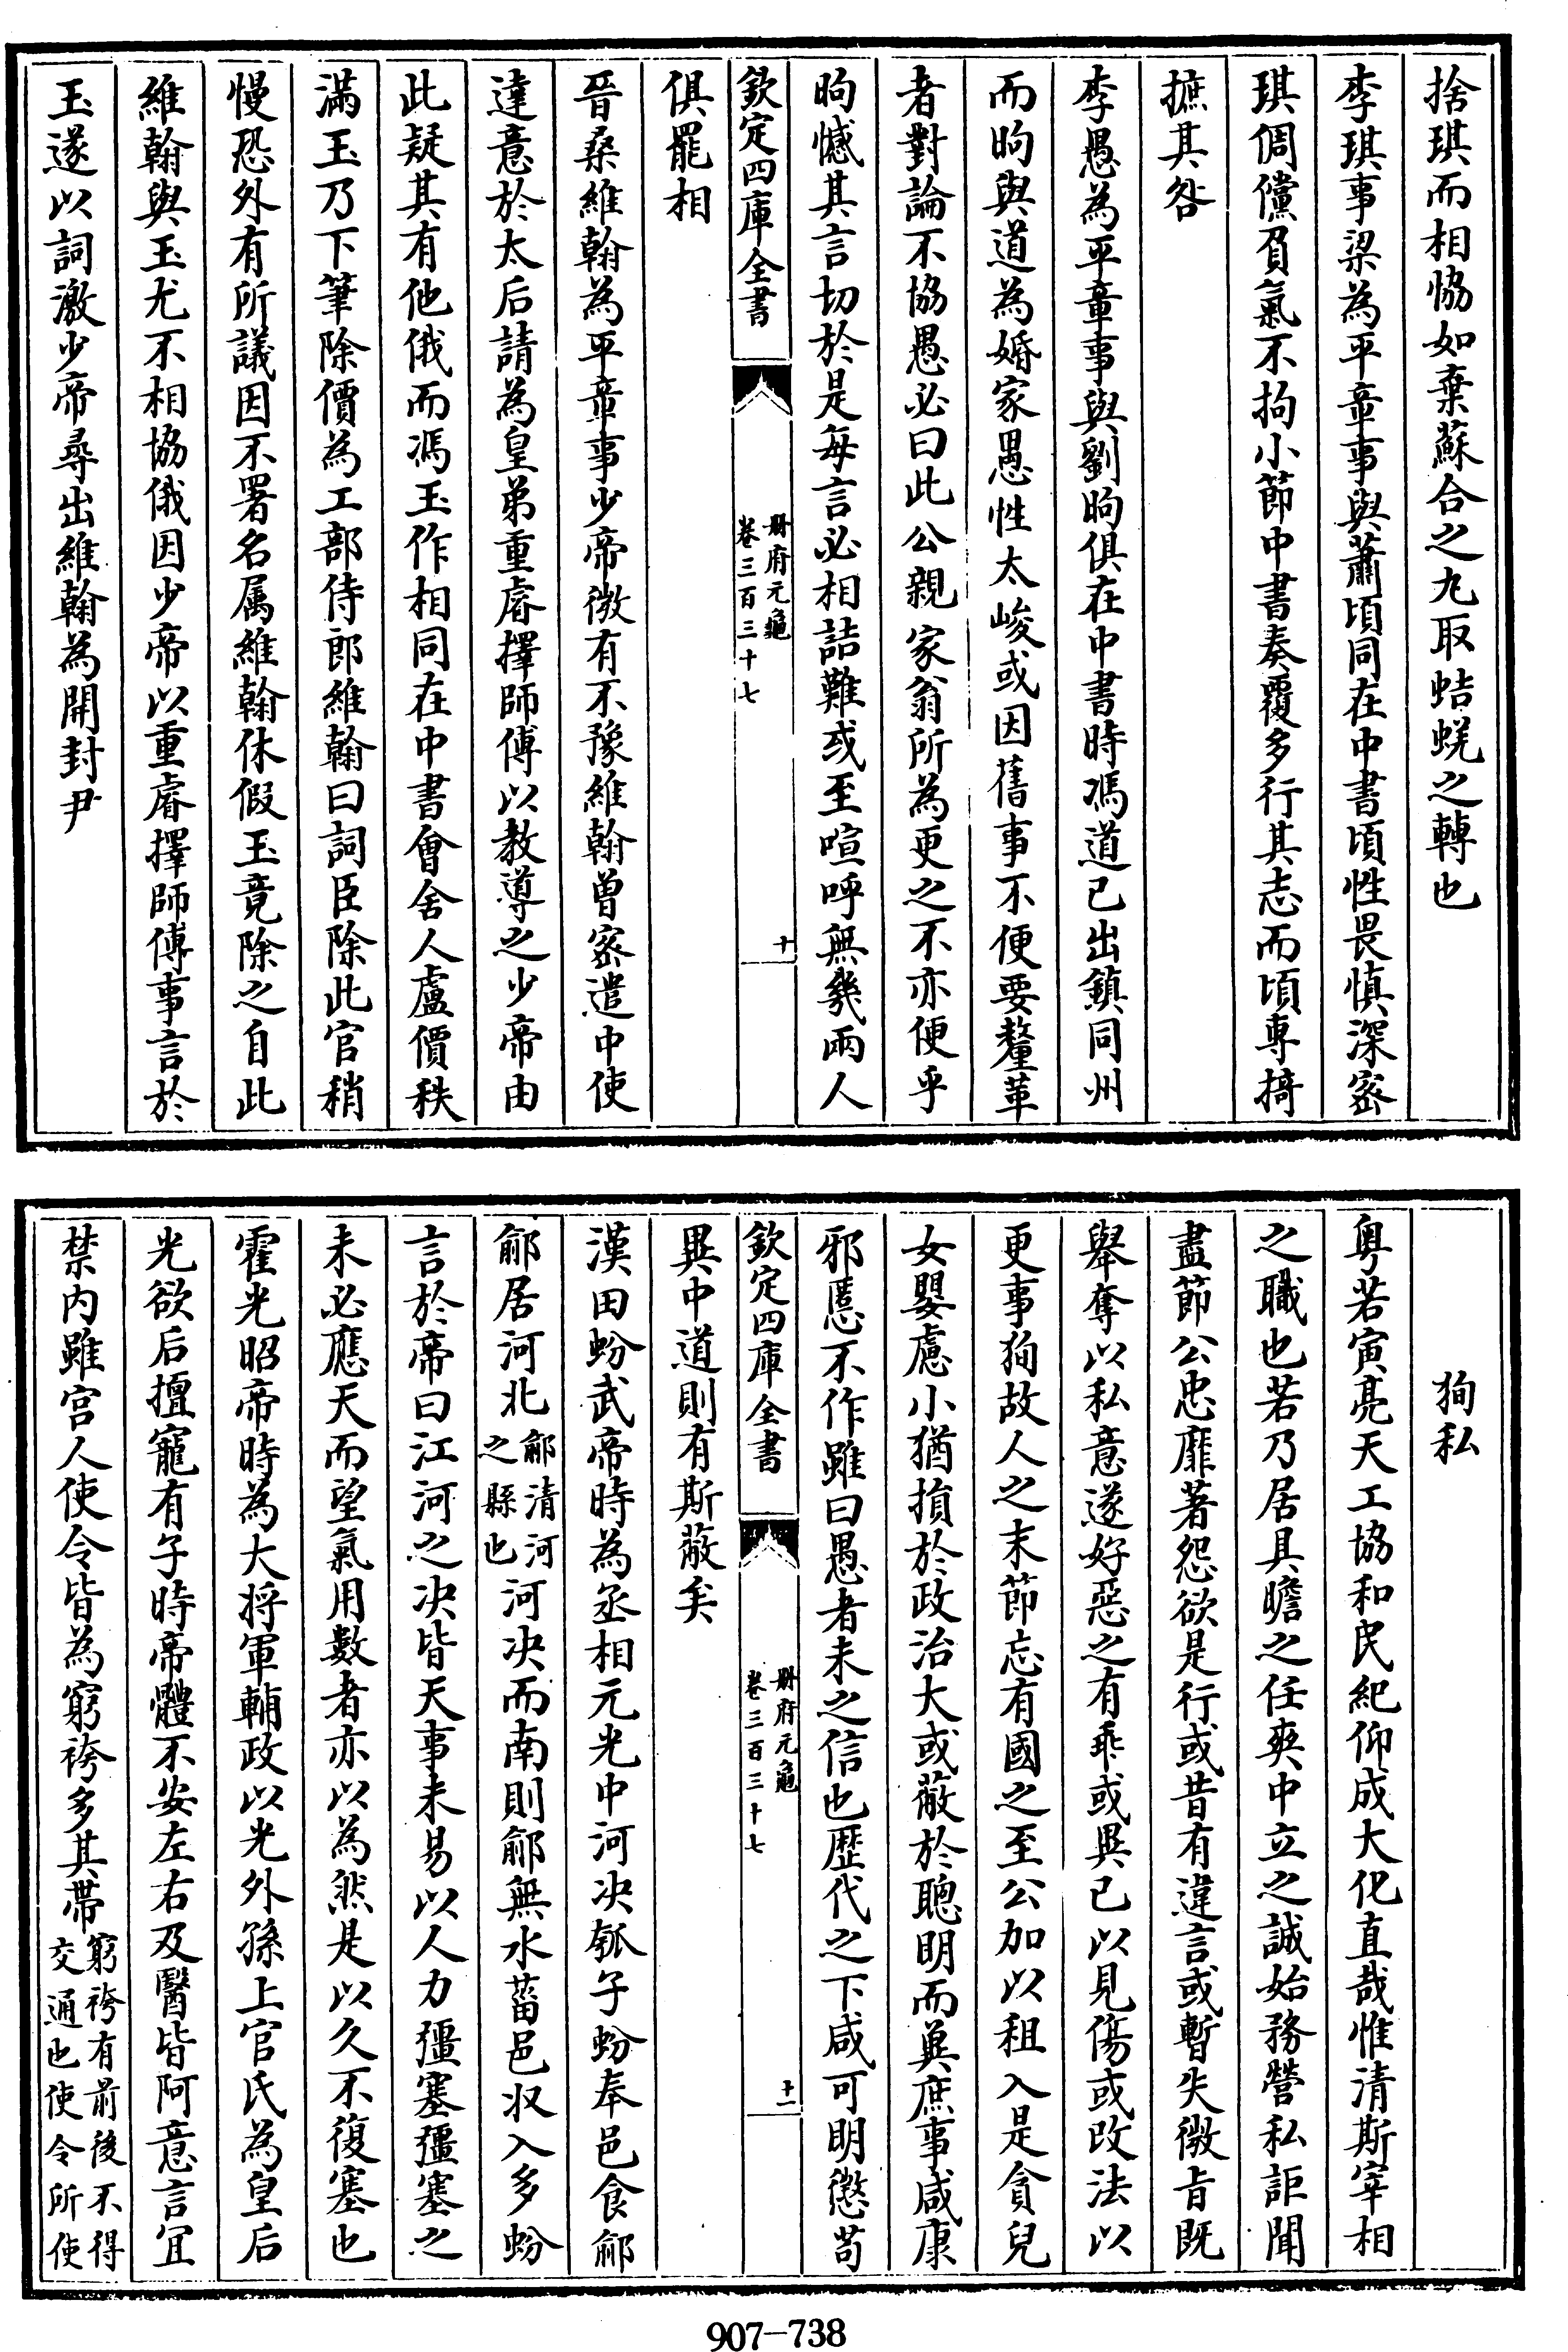 捨琪而相協如棄蘇合之丸取蛣蜣之轉也
李琪事梁為平章事與蕭頃同在中書頃性畏慎深密
琪倜儻負氣不拘小節中書奏覆多行其志而頃專掎
摭其咎
李愚為平章事與劉昫俱在中書時馮道已出鎮同州
而昫與道為婚家愚性太峻或因舊事不便要釐革
者對論不協愚必曰此公親家翁所為更之不亦便乎
昫憾其言切於是每言必相詰難或至喧呼無幾兩人
欽定四庫全書
冊府元龜
卷三百三十七
十
俱罷相
晉桑維翰為平章事少帝微有不豫維翰曽密遣中使
達意於太后請為皇弟重睿擇師傅以教導之少帝由
此疑其有他俄而馮玉作相同在中書會舍人盧價秩
滿玉乃下筆除價為工部侍郎維翰曰詞臣除此官稍
慢恐外有所議因不署名属維翰休假玉竟除之自此
維翰與玉尤不相協俄因少帝以重睿擇師傅事言於
玉遂以詞激少帝尋出維翰為開封尹
狥私
粤若寅亮天工協和民紀仰成大化直哉惟清斯宰相
之職也若乃居具瞻之任爽中立之誠始務營私詎聞
盡節公忠靡著怨欲是行或昔有違言或暫失微旨既
舉奪以私意遂好惡之有乖或異已以見傷或改法以
更事狥故人之末節忘有國之至公加以租入是貪兒
女嬰慮小猶損於政治大或蔽於聰明而冀庶事咸康
邪慝不作雖曰愚者未之信也歷代之下咸可明懲苟
欽定四庫全書
冊府元龜
卷三百三十七
十一
異中道則有斯蔽矣
漢田蚡武帝時為丞相元光中河决瓠子蚡奉邑食鄃
鄃居河北鄃清河之縣也河决而南則鄃無水菑邑収入多蚡
言於帝曰江河之决皆天事未易以人力彊塞彊塞之
未必應天而望氣用數者亦以為然是以久不復塞也
霍光昭帝時為大将軍輔政以光外孫上官氏為皇后
光欲后擅寵有子時帝體不安左右及醫皆阿意言宜
禁内雖宫人使令皆為窮袴多其帶窮袴有前後不得交通也使令所使
907-738